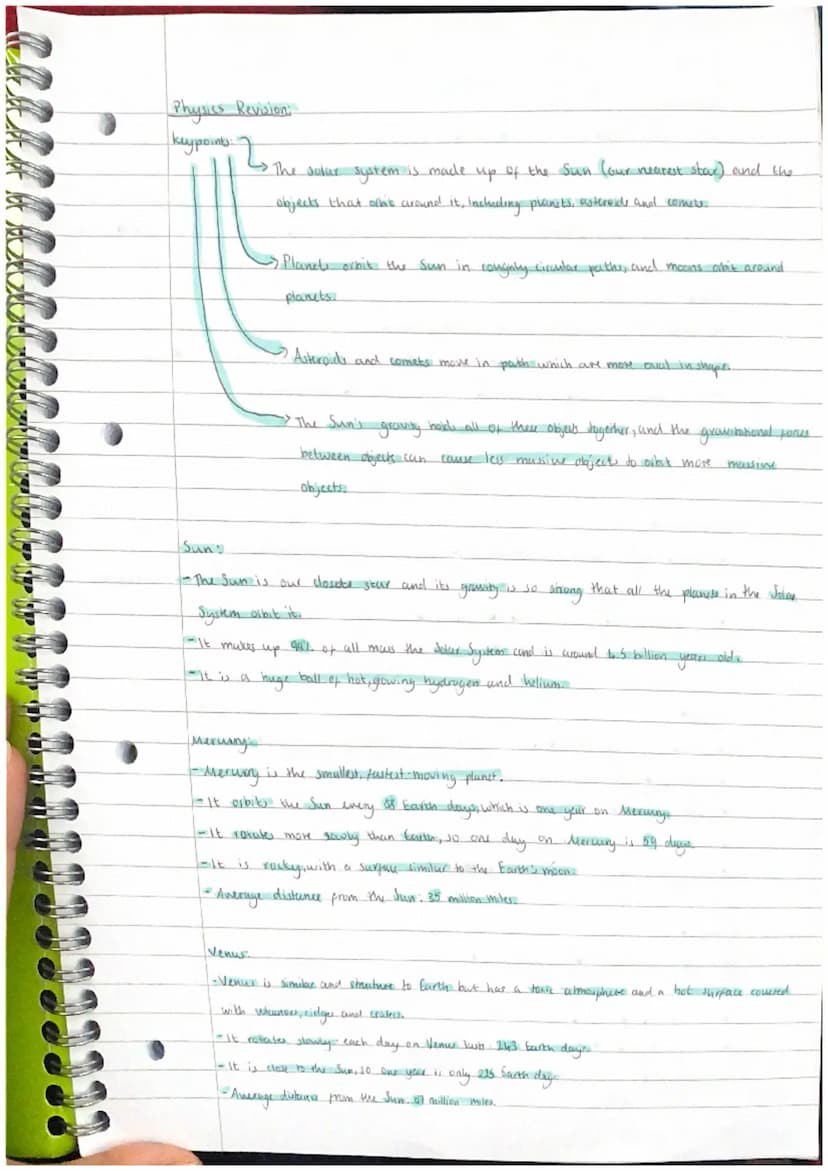 Physics Revision:
Keypoints:
The solar system is made up of the Sun (our nearest star) and the
objects that orbit around it, including planets, asteroids and comets.
Planets orbit the Sun in roughly circular paths, and moons orbit around
planets.
Asteroids and comets move in path which are more oval in shape.
The Sun's gravity holds all of these objects together, and the gravitational forces
between objects can cause less massive objects to orbit more massive
objects.
Sun:
- The Sun is our closets star and its gravity is so strong that all the planets in the Solar
System orbit it.
- It makes up % of all mass the Solar System and is around 4.5 billion years old.
- It is a huge ball of hot, glowing hydrogen and helium.
Mercury:
- Mercury is the smallest, fastest-moving planet.
- It orbits the Sun every 88 Earth days, which is one year on Mercury.
- It rotates more slowly than Earth, so one day on Mercury is 59 days.
- It is rocky, with a surface similar to the Earth's moon.
- Average distance from the Sun: 35 million miles.
Venus:
- Venus is similar and structure to Earth but has a toxic atmosphere and a hot surface covered
with volcanoes, ridges and craters.
- It rotates slowly - each day on Venus lasts 243 Earth days.
- It is close to the Sun, so one year is only 225 Earth day.
- Average distance from the Sun: 67 million miles.